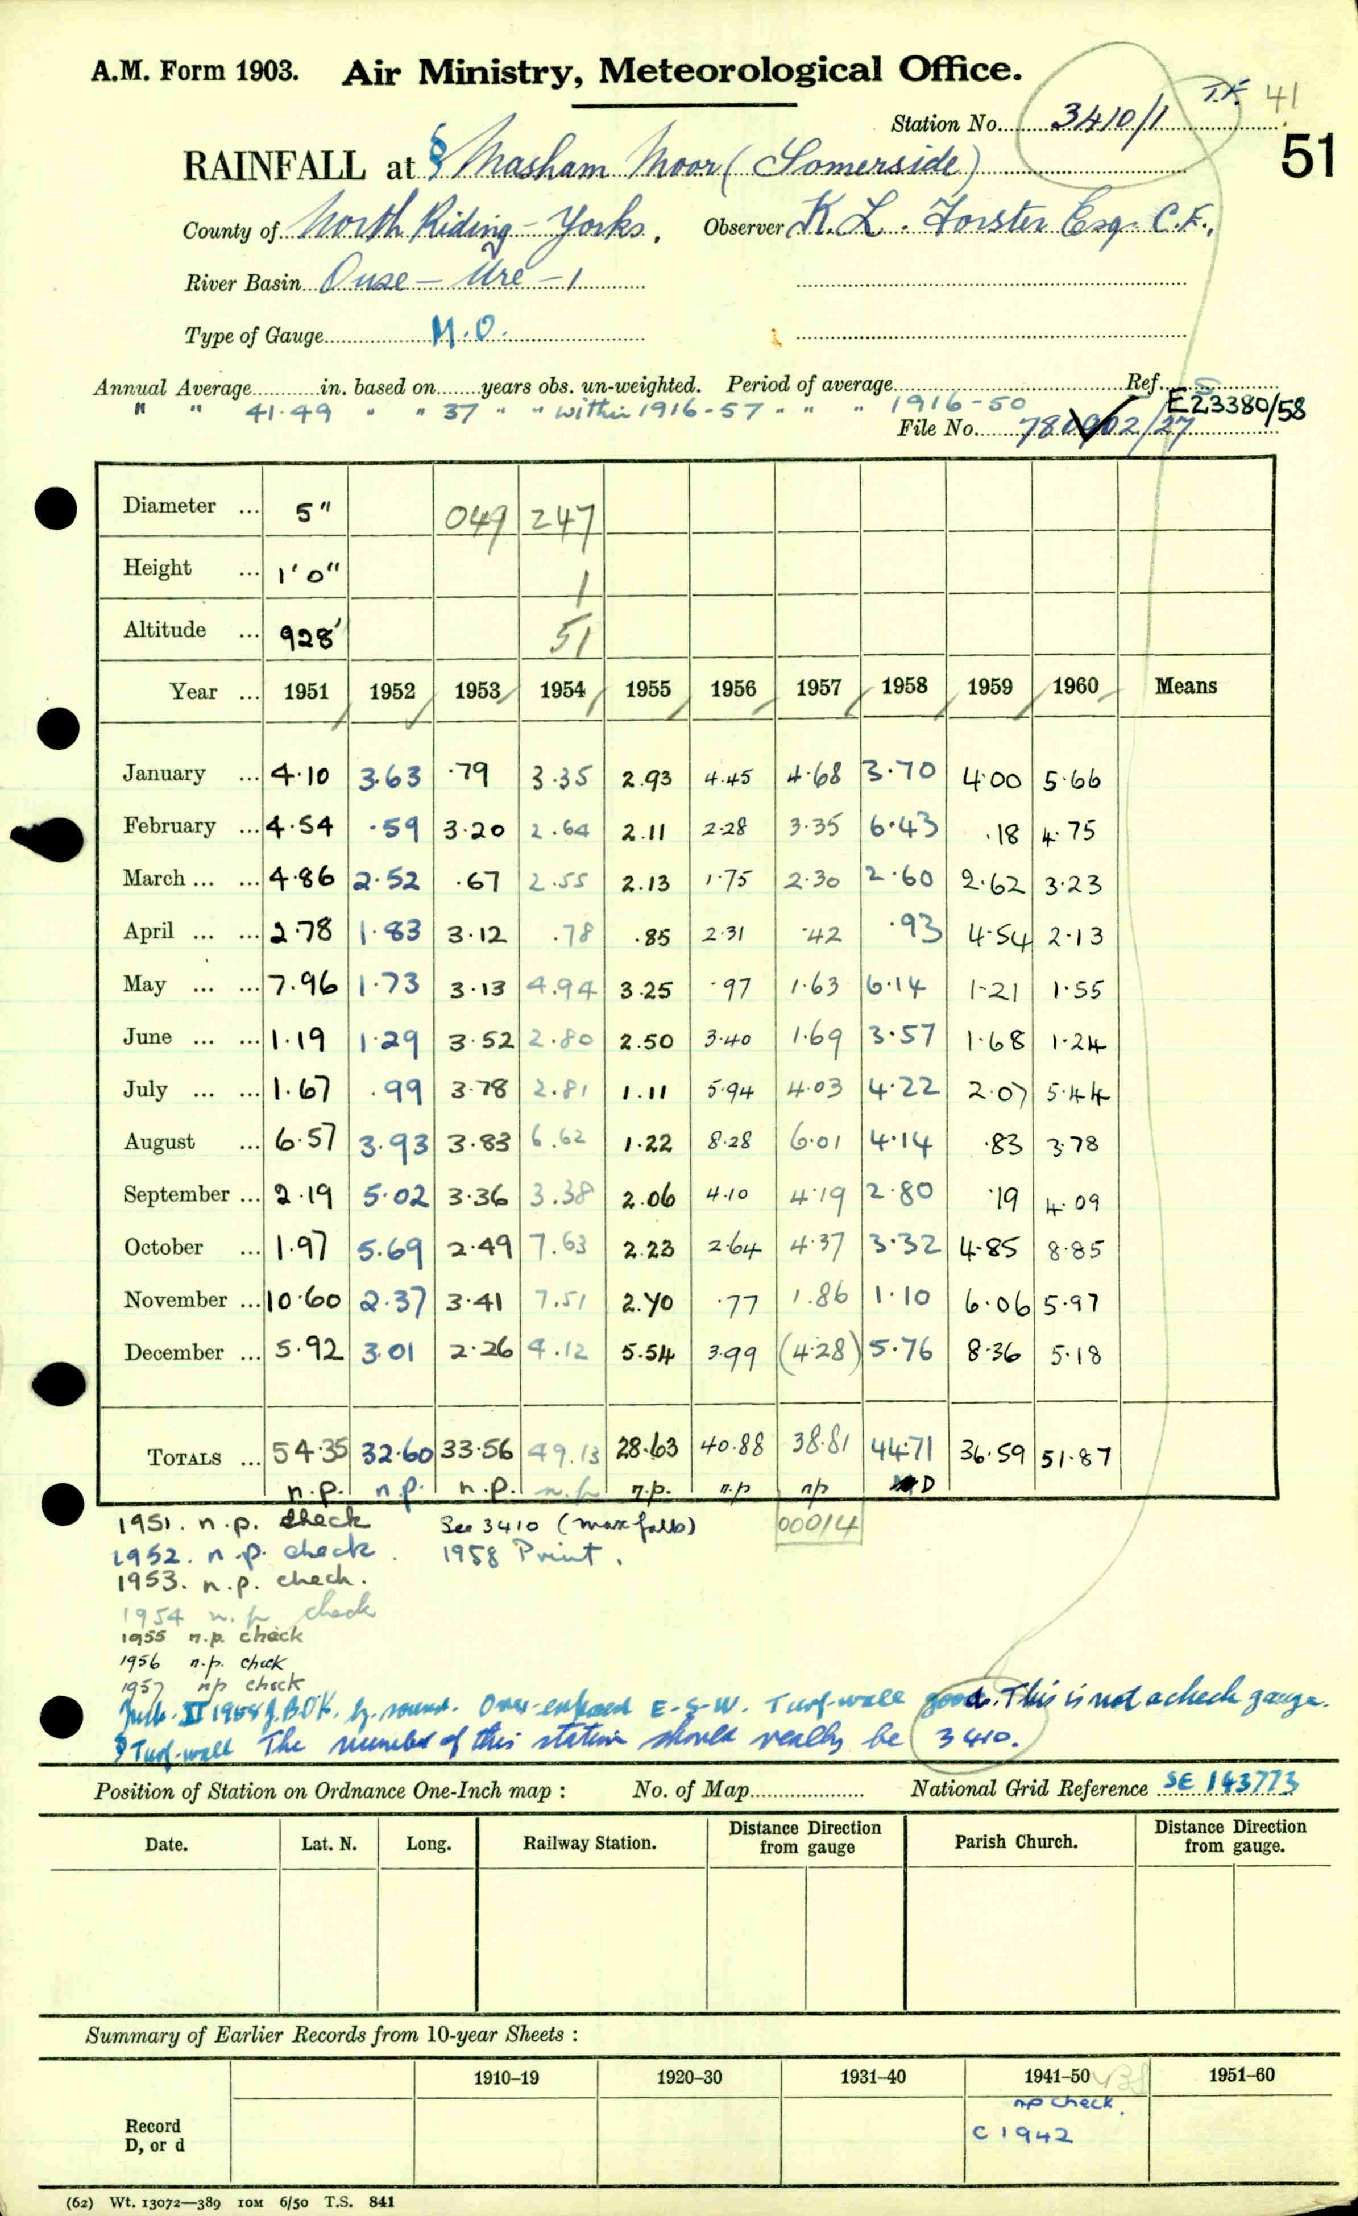 A.M. Form 1903. Air Ministry, Meteorological Office.
T.K. 41
Station No. 3410/1
51
RAINFALL at § Masham Moor (Somerside)
County of North Riding - Yorks. Observer K. L. Forster Esq. C.E.,
River Basin Ouse - Ure - 1
Type of Gauge M.O.
Annual Average in. based on years obs. un-weighted. Period of average Ref.
" " 41.49 " " 37 " " within 1916-57 " " " 1916-50 E23380/58
File No. 781902/27
Diameter ... 5" 049 247
Height ... 1'0" 1
Altitude ... 928' 51
Year ... 1951 1952 1953 1954 1955 1956 1957 1958 1959 1960 Means
January ... 4.10 3.63 .79 3.35 2.93 4.45 4.68 3.70 4.00 5.66
February ... 4.54 .59 3.20 2.64 2.11 2.28 3.35 6.43 .18 4.75
March ... ... 4.86 2.52 .67 2.55 2.13 1.75 2.30 2.60 2.62 3.23
April ... ... 2.78 1.83 3.12 .78 .85 2.31 .42 .93 4.54 2.13
May ... ... 7.96 1.73 3.13 4.94 3.25 .97 1.63 6.14 1.21 1.55
June ... ... 1.19 1.29 3.52 2.80 2.50 3.40 1.69 3.57 1.68 1.24
July ... ... 1.67 .99 3.78 2.81 1.11 5.94 4.03 4.22 2.07 5.44
August ... 6.57 3.93 3.83 6.62 1.22 8.28 6.01 4.14 .83 3.78
September ... 2.19 5.02 3.36 3.38 2.06 4.10 4.19 2.80 .19 4.09
October ... 1.97 5.69 2.49 7.63 2.23 2.64 4.37 3.32 4.85 8.85
November ... 10.60 2.37 3.41 7.51 2.70 .77 1.86 1.10 6.06 5.97
December ... 5.92 3.01 2.26 4.12 5.54 3.99 (4.28) 5.76 8.36 5.18
TOTALS ... 54.35 32.60 33.56 49.13 28.63 40.88 38.81 44.71 36.59 51.87
n.p. n.p. n.p. n.p. n.p. n.p np D
1951. n.p. check See 3410 (max falls) 00014
1952. n.p. check. 1958 Print.
1953. n.p. check.
1954 n.p check
1955 n.p. check
1956 n.p. check
1957 np check
II 1958 Over-exposed E-S-W. Turf-wall good. This is not a check gauge.
§ Turf-wall The number of this station should really be 3410.
Position of Station on Ordnance One-Inch map : No. of Map National Grid Reference SE 143773
Date. Lat. N. Long. Railway Station. Distance from Direction gauge Parish Church. Distance from Direction gauge.
Summary of Earlier Records from 10-year Sheets :
1910-19 1920-30 1931-40 1941-50 1951-60
np check.
Record
D, or d
C 1942
(62) Wt. 13072—389 10M 6/50 T.S. 841